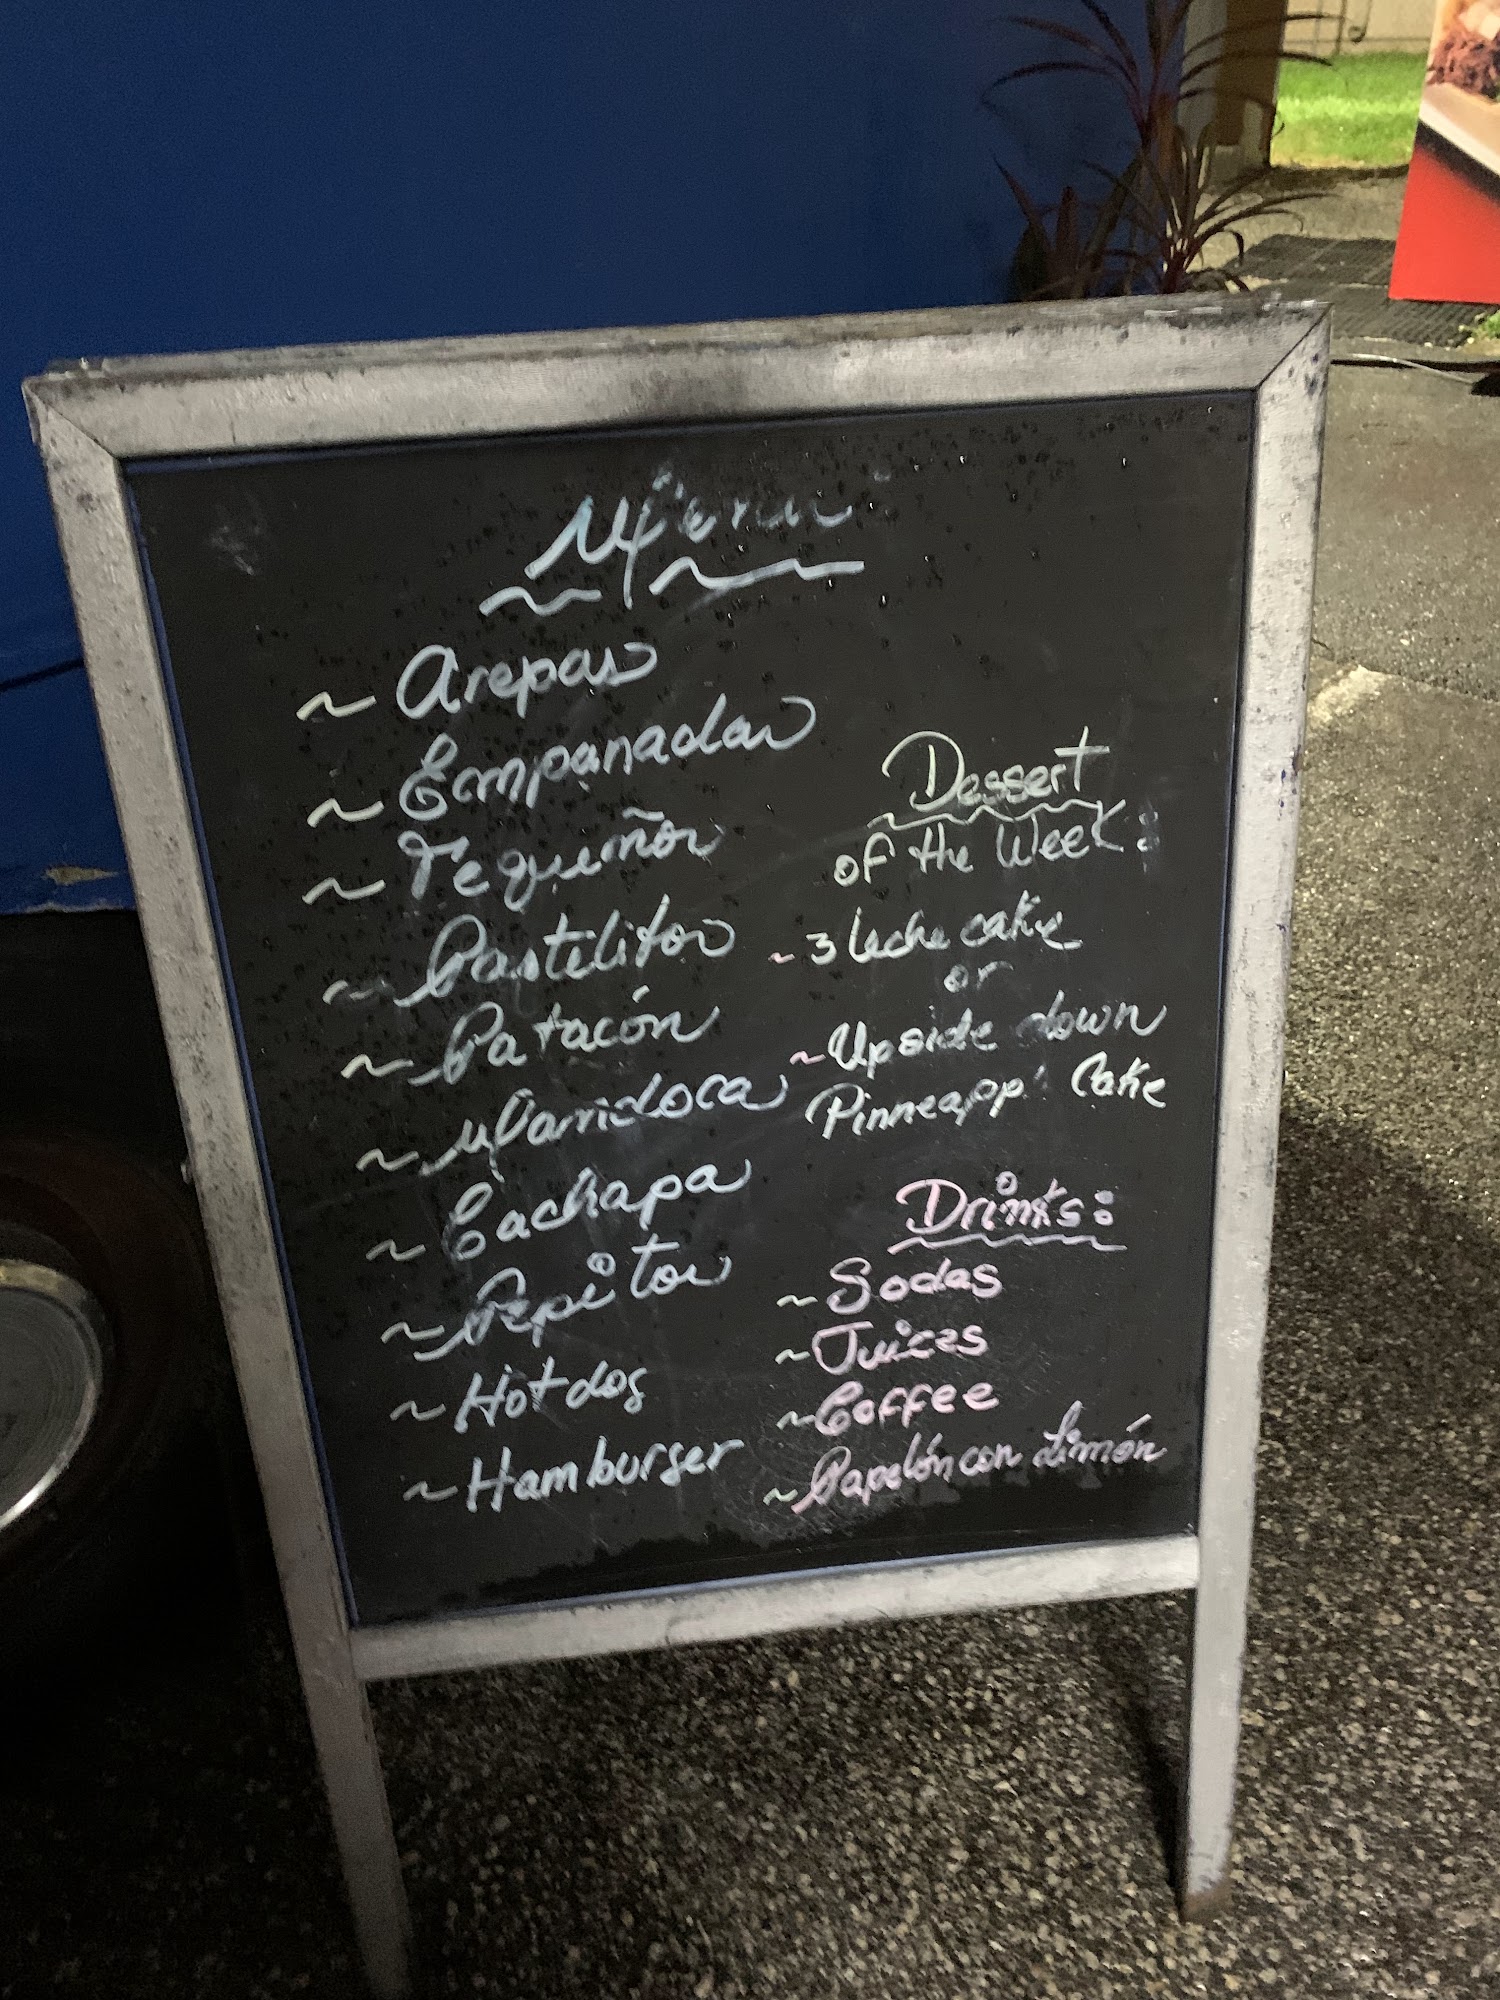 Menu
~ Arepas
~ Empanadas
~ Tequeños
~ Pastelitos
~ Patacón
~ Mandoca
~ Cachapa
~ Pepitos
~ Hot dog
~ Hamburger
Dessert
of the Week:
~ 3 leche cake
or
~ Upside down
Pinneapp Cake
Drinks:
~ Sodas
~ Juices
~ Coffee
~ Papelón con Limón